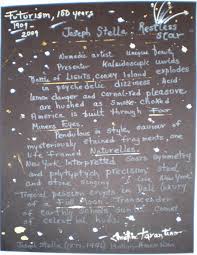 Futurism, 100 years
1909-2009
Joseph Stella Restless Star
Nomadic artist Unique beauty
Presents Kaleidoscopic worlds
Battle of Lights, Coney Island explodes
in psychedelic dizziness Acid
lemon danger and carnal-red pleasure
are hushed as smoke-choked
America is built through Four
Miners Eyes.
Pendulous in style, causer of
mysteriously stained fragments, one
life framed Naturelles.
New York Interpreted soars symmetry
and polyptych precision, steel
and stone singing
Tropical passion crypts in Vali luxury
of a Full Moon. Transcender
of earthly schools, Sun's Comet
celestial hues.
Joseph Stella (1877-1946) Italian-American